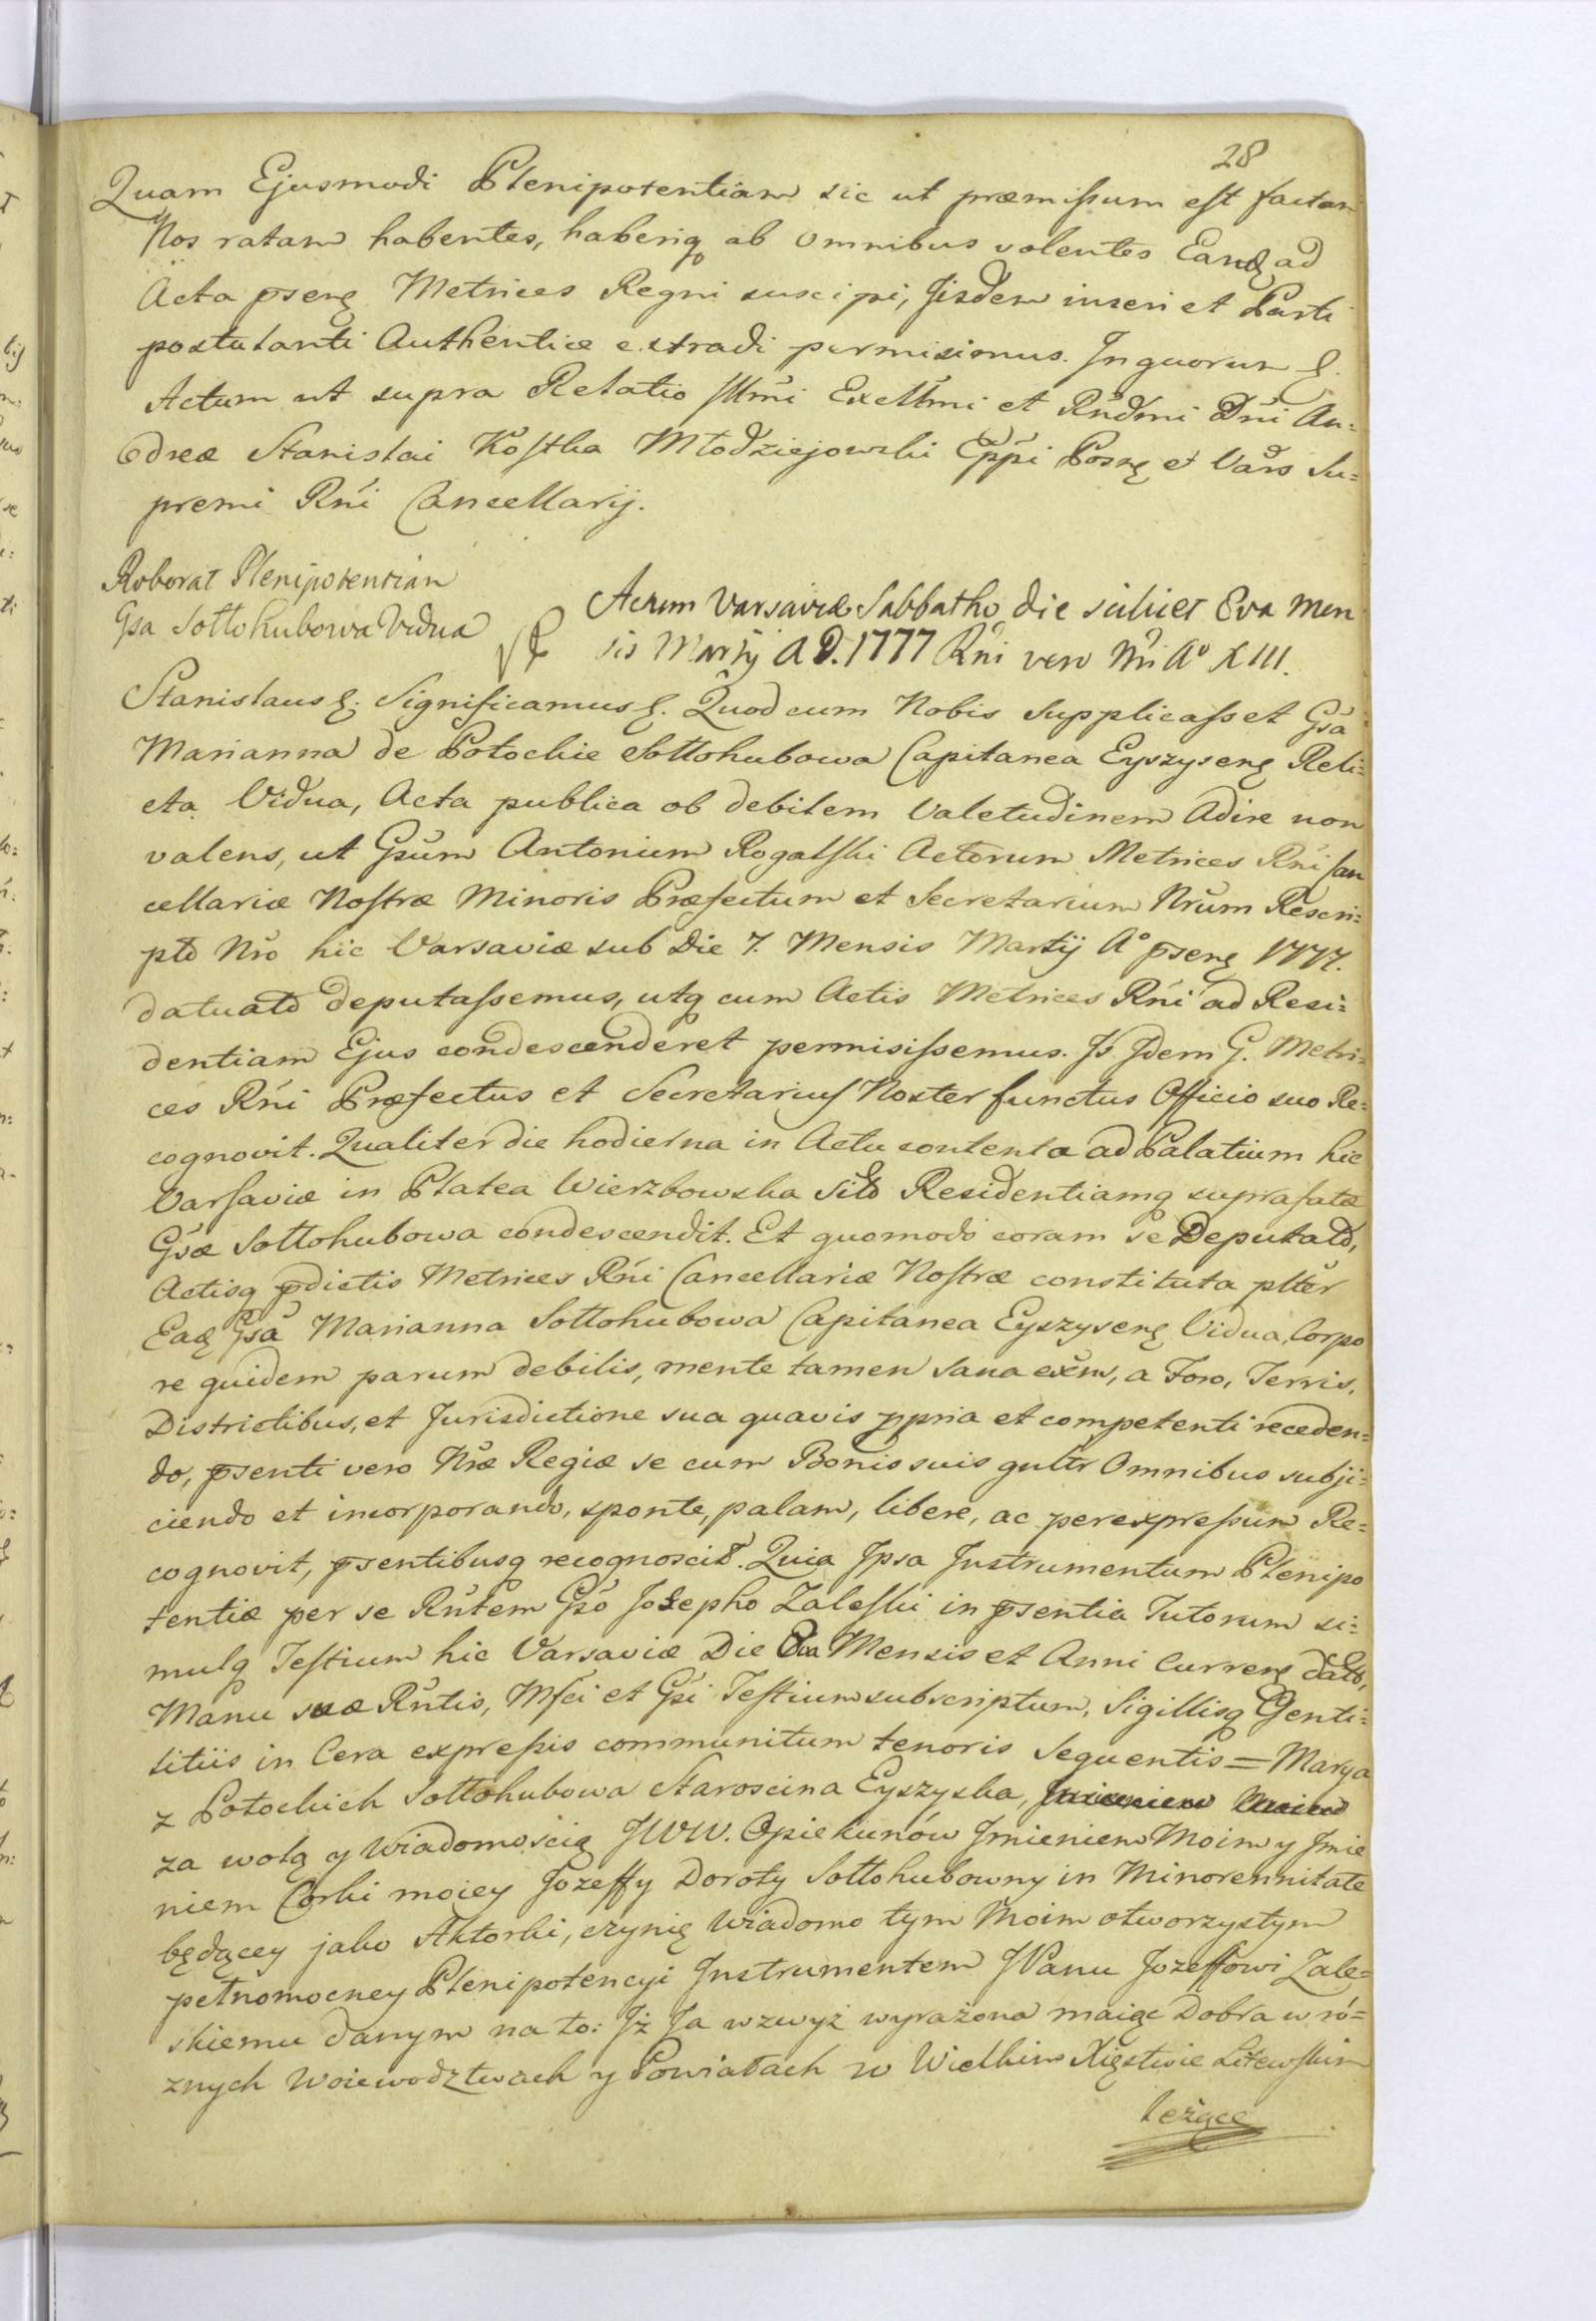 28
Quam Ejusmodi Plenipotentiam sic ut præmissum est factam
Nos ratam habentes, haberiq ab omnibus volentes Eandę ad
Acta pseng Metrices Regni suscipi, Jisdem inseri et Parti
postulanti Authentice extradi permisimus. In quorum ę.
Actum ut supra Relatio Illmi Excllmi et Rndmi Dni An=
dreæ Stanislai Kostka Młodziejowski Eppi Posnę et Vars Su=
premi Rni Cancellarij.
Roborat Plenipotentian
Gsa Sołłohubowa Vidua
Actum Varsaviæ Sabbatho die scilicet 8va Men
sis Martij A D. 1777 Rni vero Nri A° XIII.
Stanislaus ę. Significamus ę. Quod cum Nobis supplicasset Gsa
Marianna de Potockie Sołłohubowa Capitanea Eyszyseng Reli=
cta Vidua, Acta publica ob debilem Valetudinem Adire non
valens, ut Gsum Antonium Rogalski Actorum Metrices Rni Can
cellariæ Nostræ Minoris Præfectum et Secretarium Nrum Rescri=
pto Nro hic Varsaviæ sub Die 7. Mensis Martij A° pseng 1777.
datuato deputassemus, utq cum Actis Metrices Rni ad Resi=
dentiam Ejus condescenderet permisissemus. Js Jdem G. Metri=
ces Rni Præfectus et Secretarius Noster functus Officio suo Re=
cognovit. Qualiter die hodierna in Actu contenta ad Palatium hic
Varsaviæ in Platea Wierzbowska Sito Residentiamq suprafatæ
Gsæ Sołłohubowa condescendit. Et quomodo coram se Deputato,
Actisq pdictis Metrices Rni Cancellariæ Nostræ constituta plter
Eadę Gsa Marianna Sołłohubowa Capitanea Eyszyseng Vidua, Corpo
re quidem parum debilis, mente tamen sana exns, a Foro, Terris,
Districtibus, et Jurisdictione sua quavis ppria et competenti receden=
do, psenti vero Nræ Regiæ se cum Bonis suis gnltr Omnibus subji=
ciendo et incorporando, sponte, palam, libere, ac per expressum Re=
cognovit, psentibusq recognoscit. Quia Jpsa Instrumentum Plenipo
tentiæ per se Rntem Gso Josepho Zaleski in psentia Tutorum si=
mulq Testium hic Varsaviæ Die 8va Mensis et Anni Curreng dato,
Manu suæ Rntis, Mfci et Gsi Testium subscriptum, Sigillisq Genti=
litiis in Cera expressis communitum tenoris sequentis = Marya
z Potockich Sołłohubowa Staroscina Eyszyska, Jmieniem Moim
za wolą y wiadomością JWW. Opiekunów Jmieniem Moim y Jmie
niem Corki moiey Jozeffy Doroty Sołłohubowny in Minorennitate
będącey jako Aktorki, czynię wiadomo tym Moim otworzystym
pełnomocney Plenipotencyi Instrumentem JPanu Jozeffowi Zale=
skiemu danym na to: Jż Ja wzwyż wyrażona maiąc Dobra w ró=
znych Woiewodztwach y Powiatach w Wielkim Xięstwie Litewskim
leżące